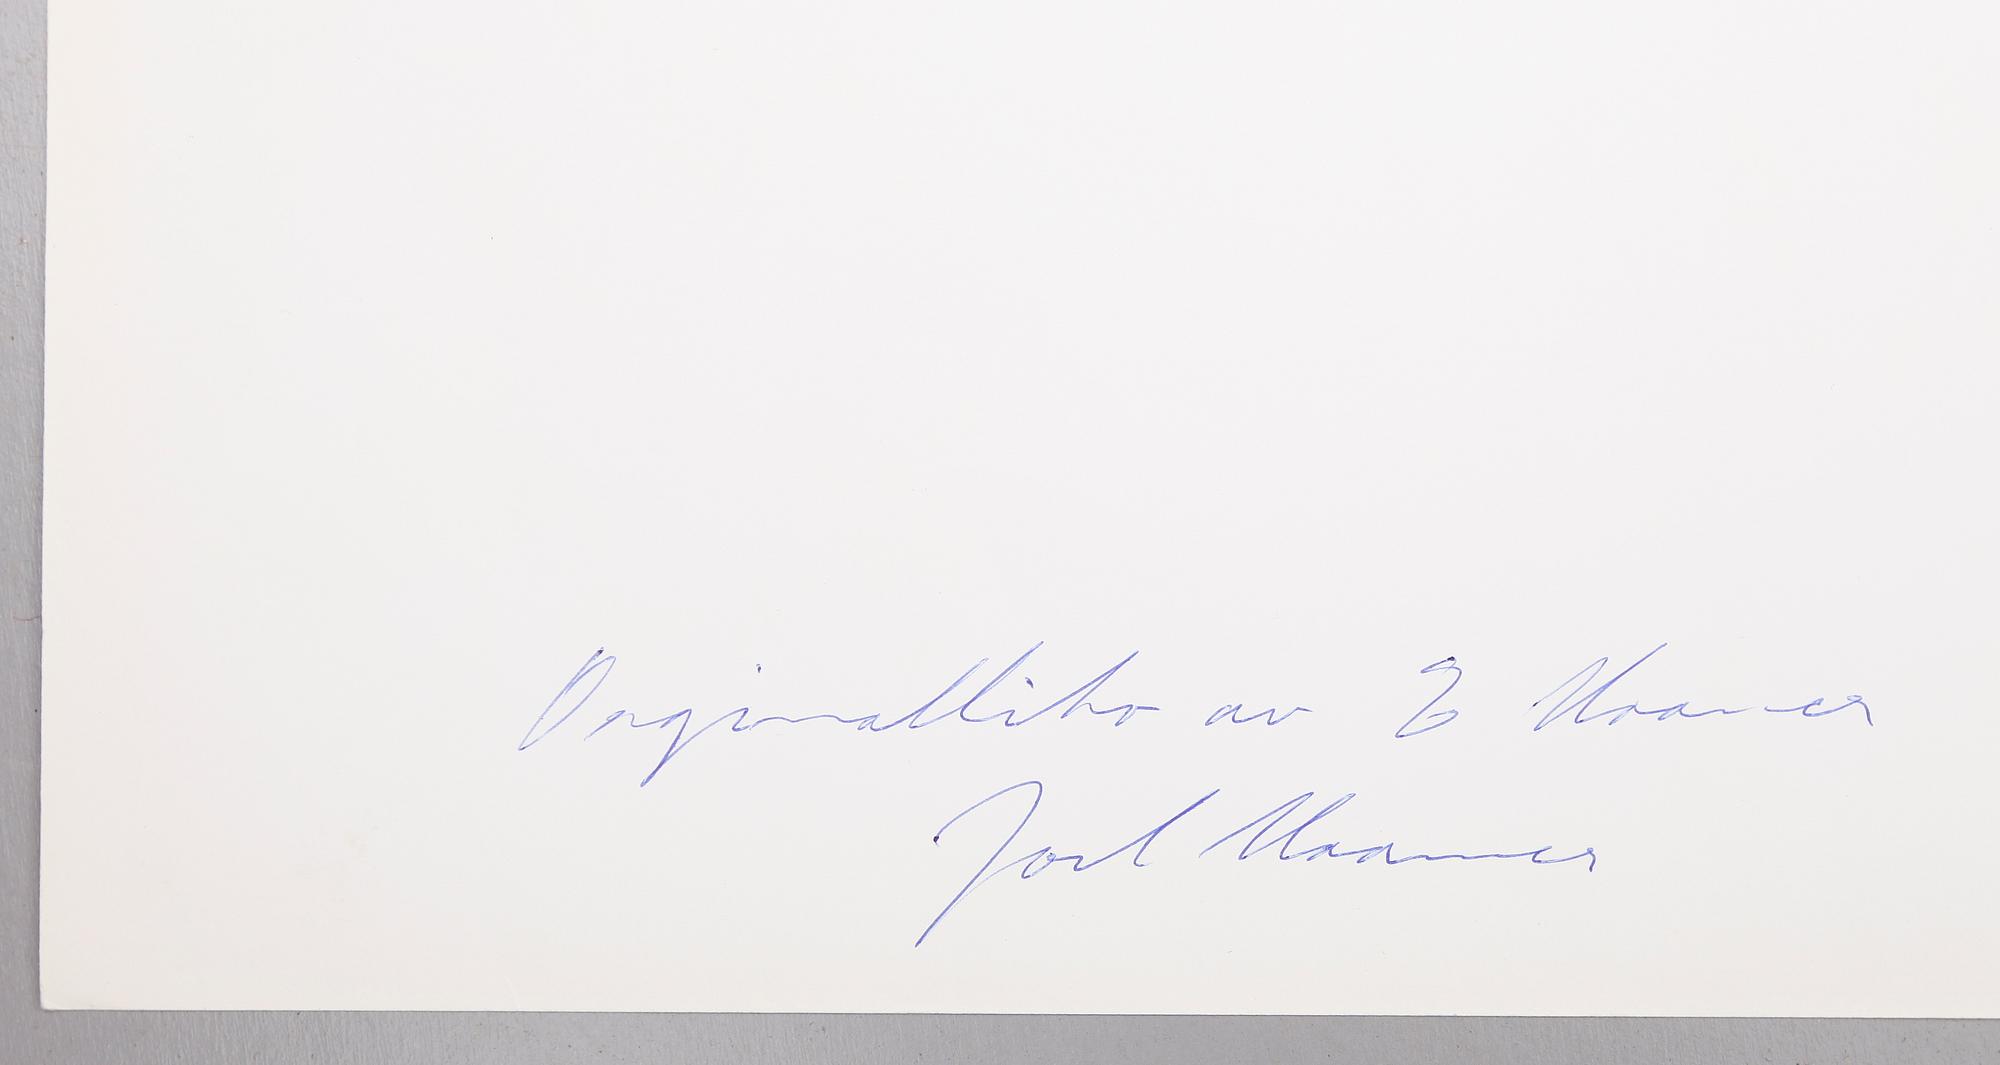 Orginallitho av E Haamer
Joel Haamer